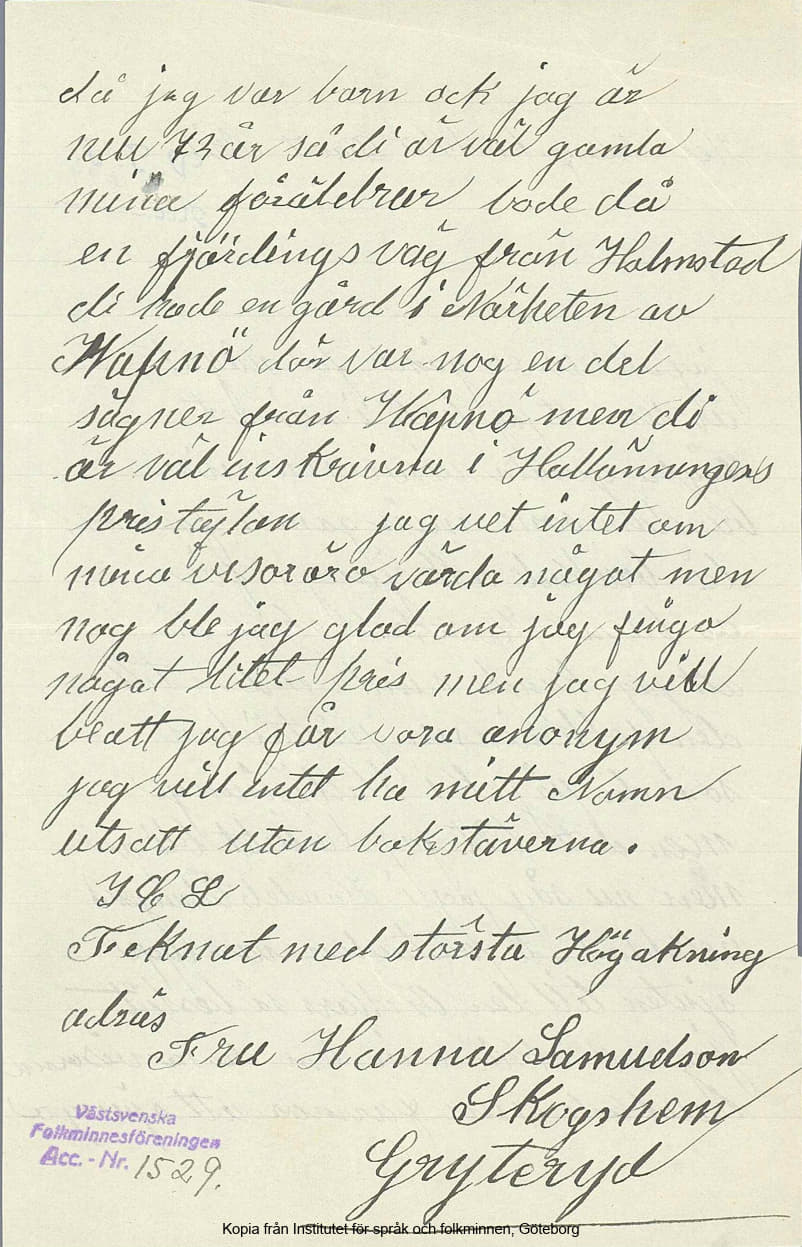 då jag var barn ock jag är
nu 73 år så di är väl gamla
mina föräldrar bode då
en fjärdingsväg från Halmstad
di hade en gård i Närheten av
Wapnö där var nog en del
sägner från Wapnö men di
är väl inskrivna i Hallänningens
pristäflan jag vet intet om
mina visor äro värda något men
nog ble jag glad om jag finga
något litet pris men jag vill
be att jag får vara anonym
jag vill intet ha mitt Namn
utsatt utan bokstäverna.
Teknat med största Högakning
adräs
Fru Hanna Samuelson
Skogshem
Gryteryd
Västsvenska
Folkminnesföreningen
Acc. - Nr. 1529.
Kopia från Institutet för språk och folkminnen, Göteborg